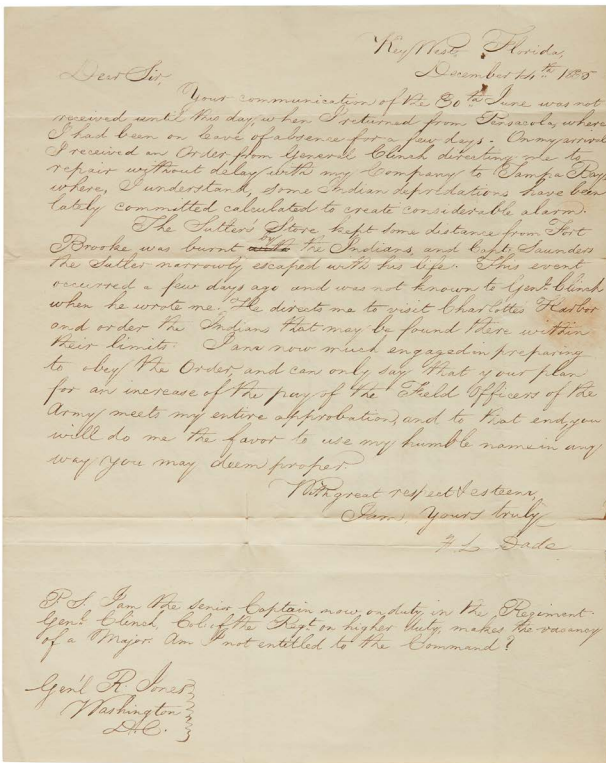 Key West Florida,
December 14th 1835
Dear Sir,
Your communication of the 30th June was not
received until this day, when I returned from Pensacola, where
I had been on leave of absence for a few days. On my arrival
I received an Order from General Clinch directing me to
repair without delay with my Company to Tampa Bay,
where, I understand, some Indian depredations have been
lately committed calculated to create considerable alarm.
The Sutler's Store kept some distance from Fort
Brooke was burnt by the Indians, and Capt. Saunders
the Sutler narrowly escaped with his life. This event
occurred a few days ago and was not known to Genl. Clinch
when he wrote me. He directs me to visit Charlottes Harbor
and order the Indians that may be found there within
their limits. I am now much engaged in preparing
to obey the Order, and can only say that your plan
for an increase of the pay of the Field Officers of the
Army meets my entire approbation, and to that end, you
will do me the favor to use my humble name in any
way you may deem proper
With great respect & esteem,
I am yours truly
F. L. Dade
P.S. I am the senior Captain now, on duty, in the Regiment.
Genl. Clinch, Col. of the Regt. on higher duty, makes the vacancy
of a Major. Am I not entitled to the Command?
Gen'l R. Jones
Washington
D.C.